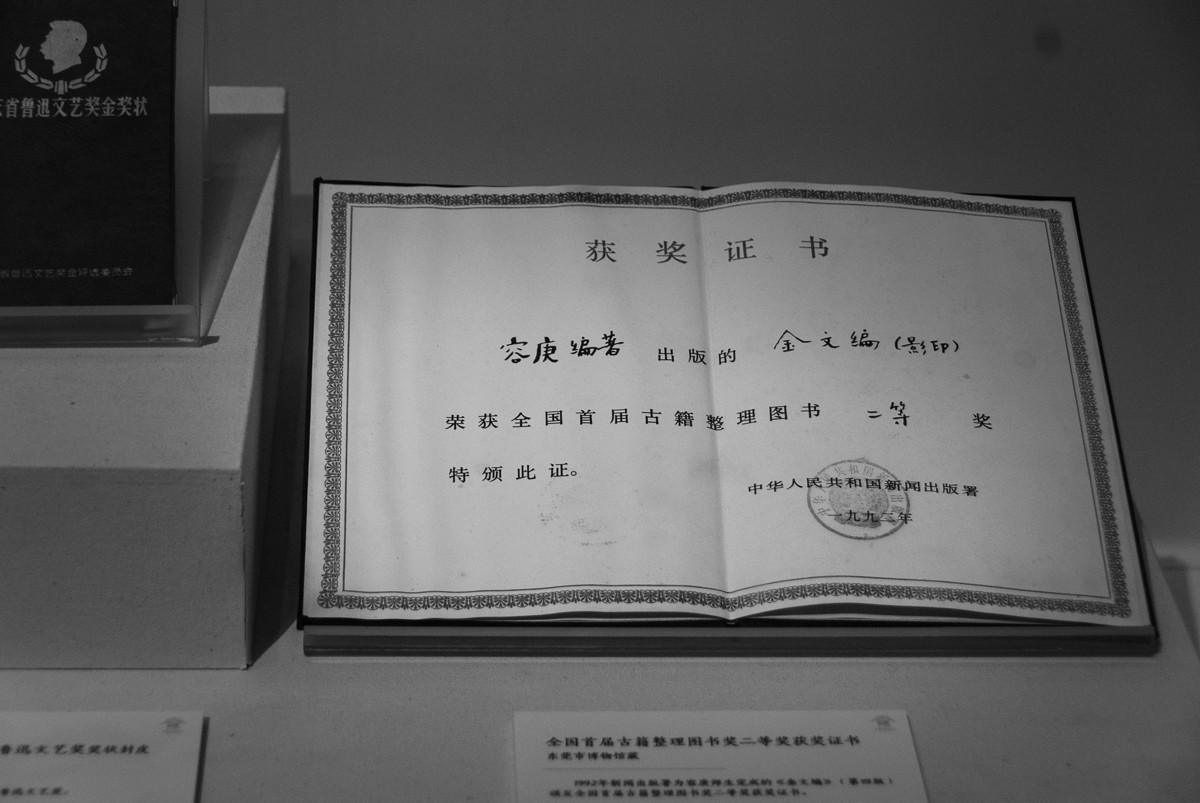 省鲁迅文艺奖金奖状
鲁迅文艺奖金评选委员会
获奖证书
容庚编著 出版的 金文编(影印)
荣获全国首届古籍整理图书 二等 奖
特颁此证。
中华人民共和国新闻出版署
一九九二年
鲁迅文艺奖奖状封皮
鲁迅文艺奖。
全国首届古籍整理图书奖二等奖获奖证书
东莞市博物馆藏
1992年新闻出版署为容庚师生完成的《金文编》(第四版)
颁发全国首届古籍整理图书奖二等奖获奖证书。